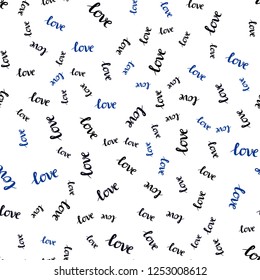 love love love love love love
love love love love love
love love love love love love
love love love love love love
love love love love love love
love love love love love
love love love love love love
love love love love love
love love love love love love
love love love love love love
love love love love love
love love love love love love
shutterstock.com · 1253008612